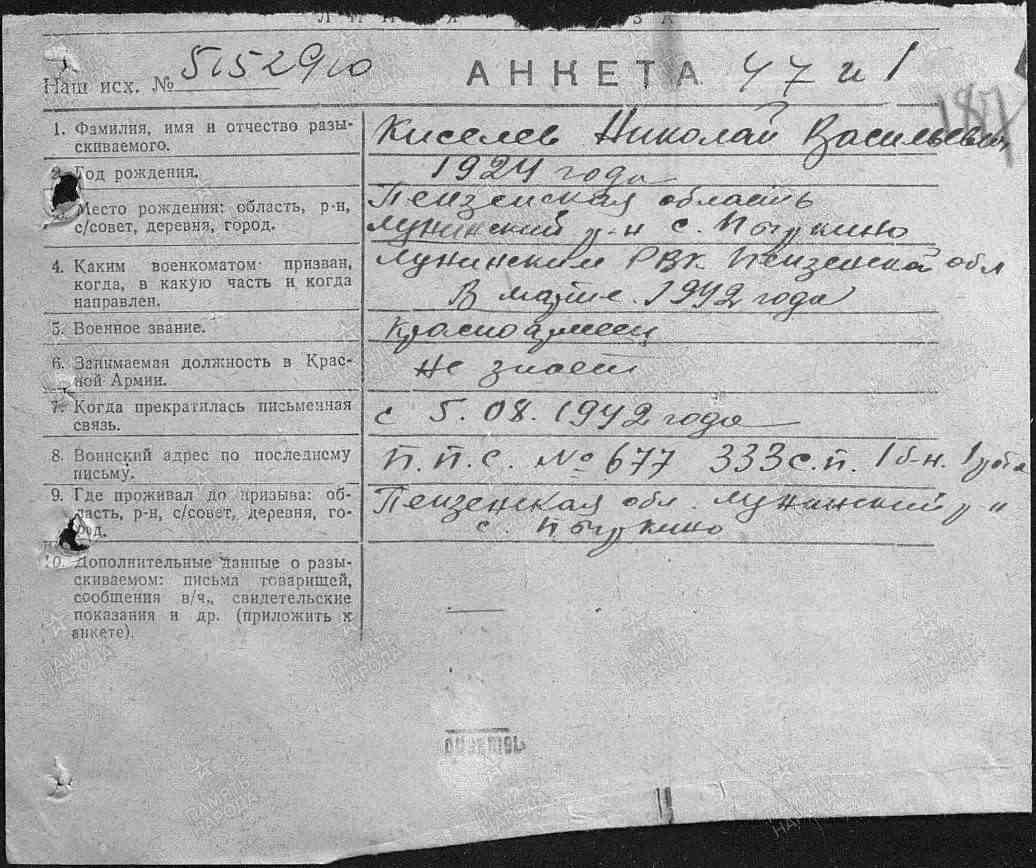 Наш исх. № 515290
АНКЕТА 47 и 1
187
1. Фамилия, имя и отчество разы-
скиваемого.
Киселев Николай Васильевич
2. Год рождения.
1924 года
3. Место рождения: область, р-н,
с/совет, деревня, город.
Пензенская область
Лунинский р-н с. Пычукино
4. Каким военкоматом призван,
когда, в какую часть и когда
направлен.
Лунинским РВК Пензенской обл
В марте 1942 года
5. Военное звание.
Красноармеец
6. Занимаемая должность в Крас-
ной Армии.
Не знает
7. Когда прекратилась письменная
связь.
с 5.08.1942 года
8. Воинский адрес по последнему
письму.
П.П.С. № 677 333 с.п. 1 б-н. 1 рота
9. Где проживал до призыва: об-
ласть, р-н, с/совет, деревня, го-
род.
Пензенская обл. Лунинский р-н
с. Пычукино
10. Дополнительные данные о разы-
скиваемом: письма товарищей,
сообщения в/ч., свидетельские
показания и др. (приложить к
анкете).
ПАМЯТЬ
НАРОДА